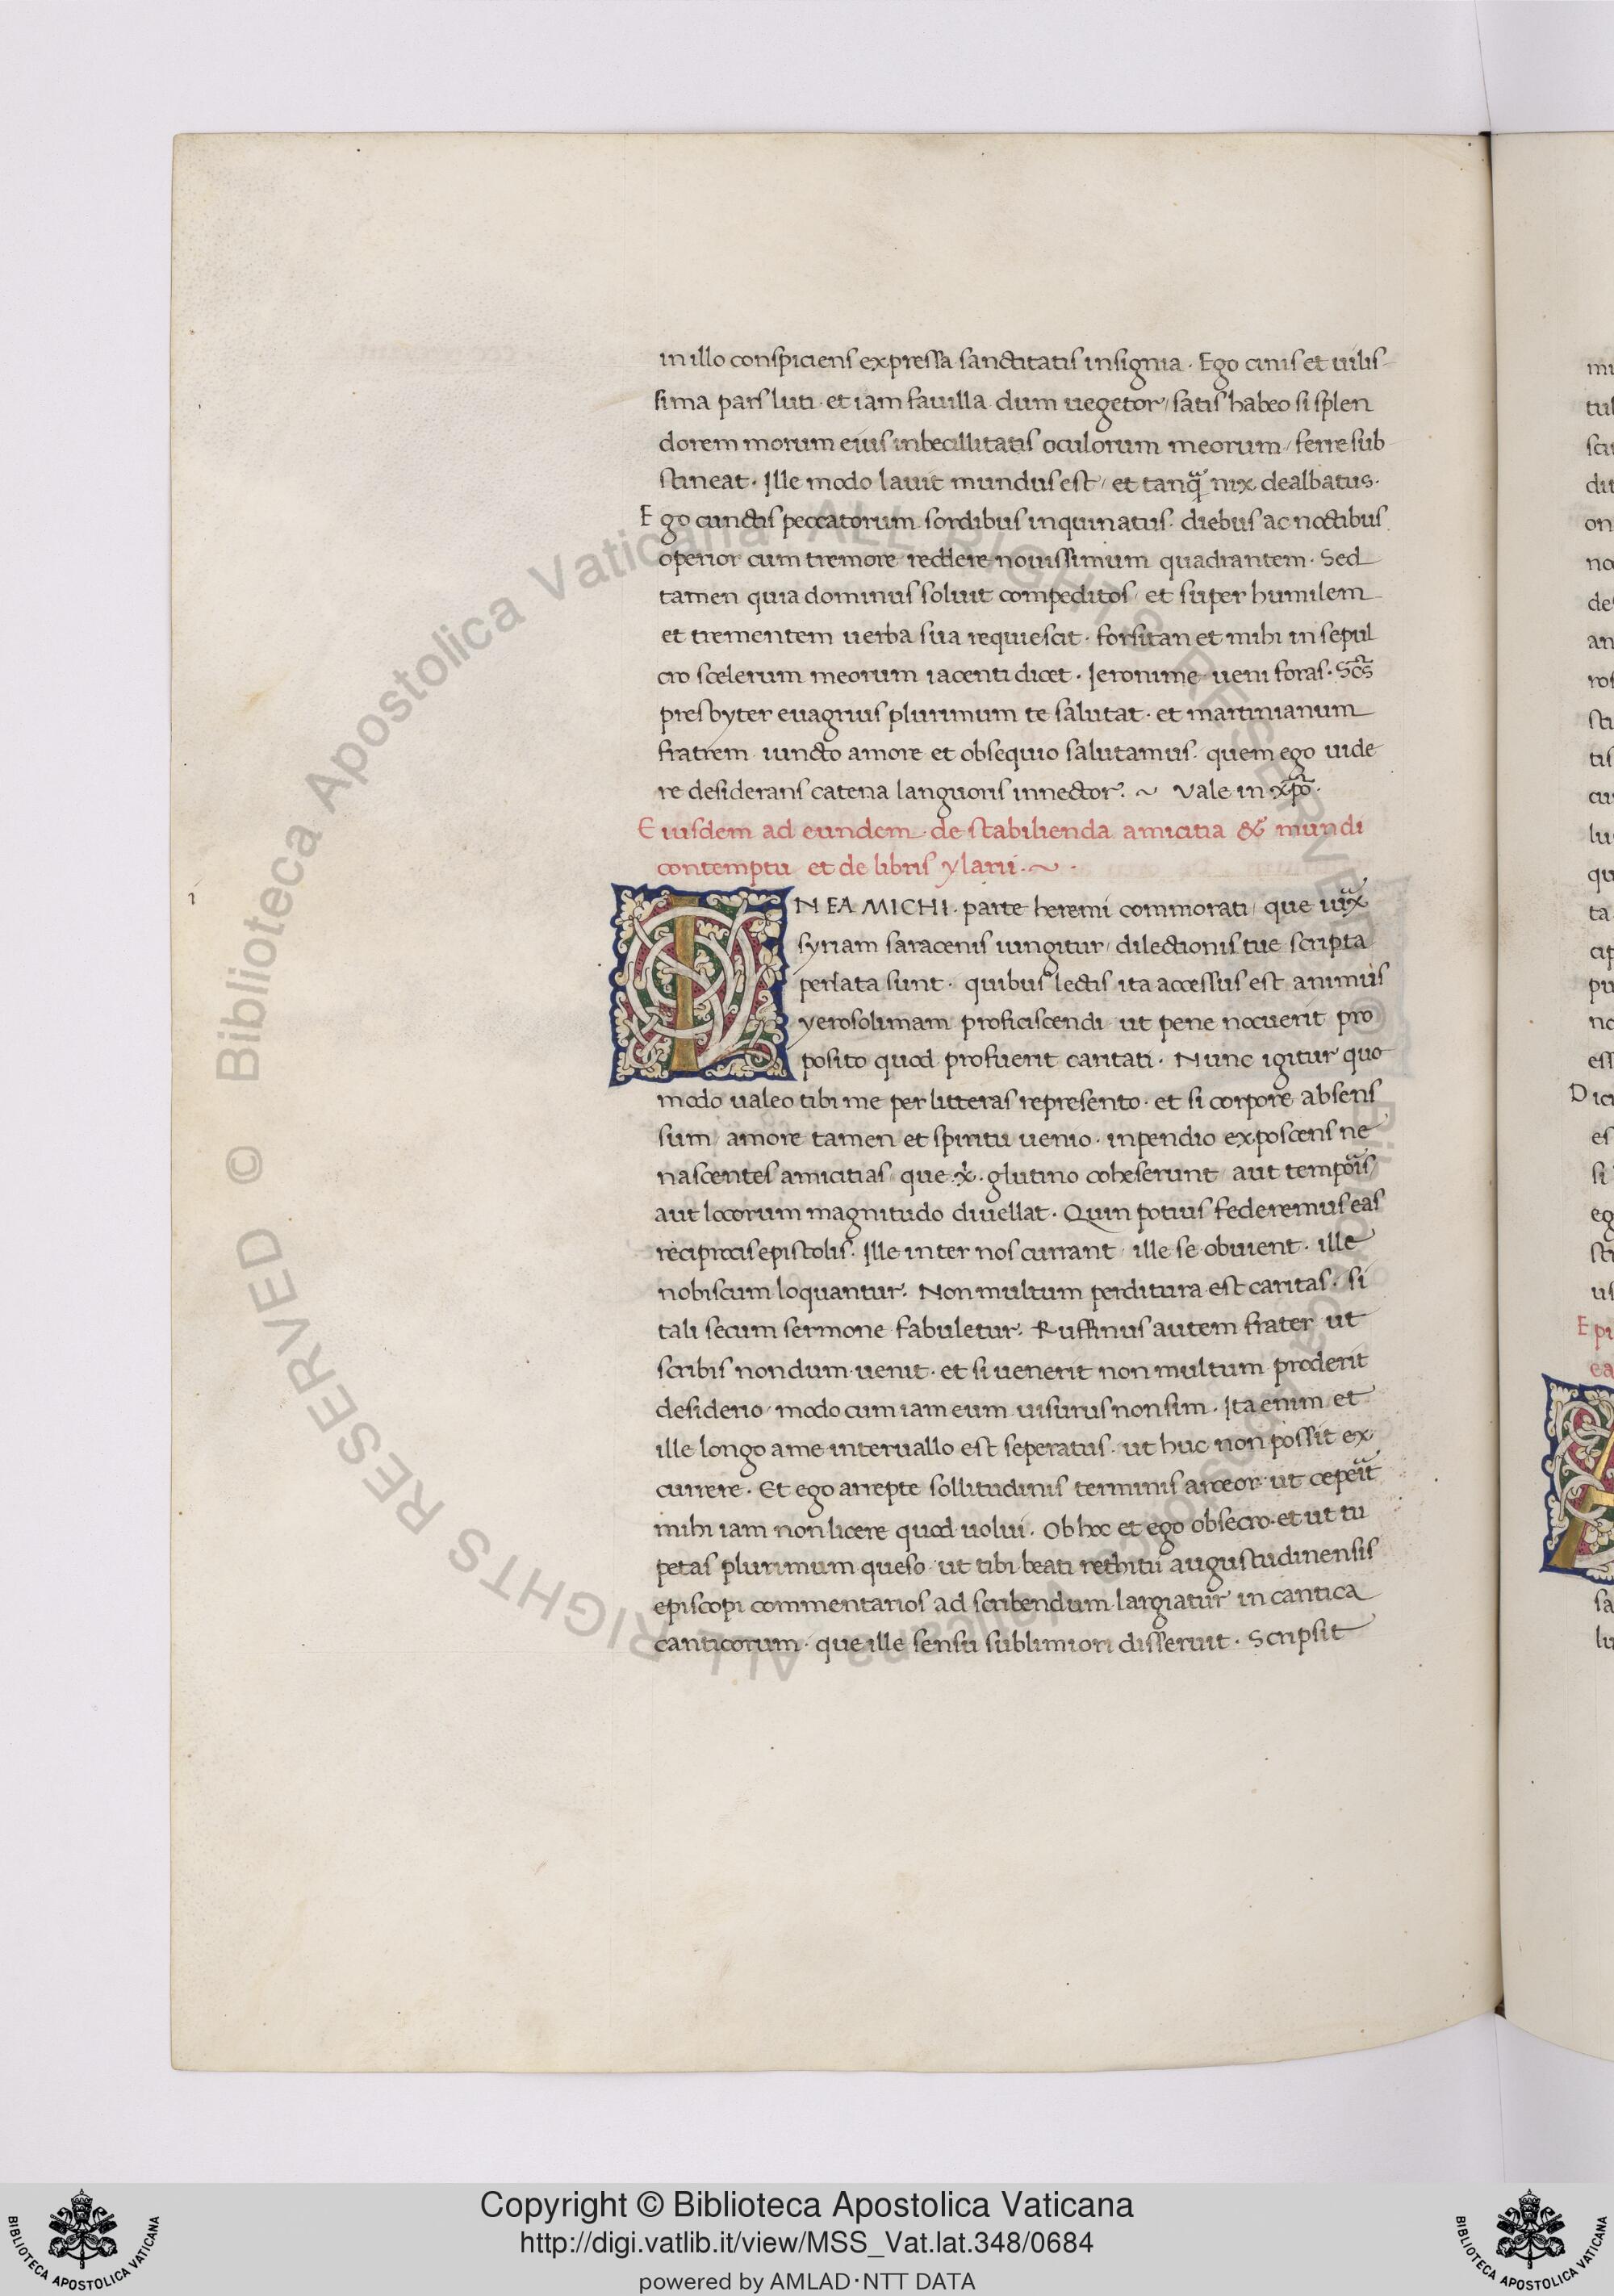 in illo conspiciens expressa sanctitatis insignia. Ego cinis et uilis-
sima pars luti et iam fauilla dum uegetor, satis habeo si splen
dorem morum eius inbecillitatis oculorum meorum, ferre sub
stineat. Ille modo lauit mundus est, et tanq̃ nix dealbatus.
Ego cunctis peccatorum sordibus inquinatus. diebus ac noctibus
operior cum tremore reddere nouissimum quadrantem. Sed
tamen quia dominus soluit compeditos, et super humilem
et trementem uerba sua requiescit. forsitan et mihi in sepul
cro scelerum meorum iacenti dicet. Ieronime ueni foras. Sc̃s
presbyter euagrius plurimum te salutat. et martinianum
fratrem iuncto amore et obsequio salutamus. quem ego uide
re desiderans catena languoris innector. ~ Vale in xp̃o.
Eiusdem ad eundem. de stabilienda amicitia & mundi
contemptu et de libris ylarii. ~ .
IN EA MICHI. parte heremi commorati, que iux̃
syriam saracenis iungitur, dilectionis tue scripta
perlata sunt. quibus lectis ita accessus est animus
yerosolimam proficiscendi ut pene nocuerit pro
posito quod profuerit caritati. Nunc igitur quo
modo ualeo tibi me per litteras represento. et si corpore absens
sum, amore tamen et spiritu uenio. inpendio exposcens ne
nascentes amicitias, que .x̃. glutino coheserunt, aut tempõis
aut locorum magnitudo diuellat. Quin potius federemus eas
reciprocis epistolis. Ille inter nos currant, ille se obuient. ille
nobiscum loquantur. Non multum perditura est caritas. si
tali secum sermone fabuletur. Ruffinus autem frater ut
scribis nondum uenit. et si uenerit non multum proderit
desiderio, modo cum iam eum uisurus non sim. Ita enim et
ille longo a me interuallo est seperatus. ut huc non possit ex
currere. Et ego arrepte sollitudinis terminis arceor. ut cepeĩt
mihi iam non licere quod uolui. Ob hoc et ego obsecro. et ut tu
petas plurimum queso. ut tibi beati rethitii augustudinensis
episcopi commentarios ad scribendum largiatur in cantica
canticorum. que ille sensu sublimiori disseruit. Scripsit
© Biblioteca Apostolica Vaticana ALL RIGHTS RESERVED
© Biblioteca Apostolica Vaticana ALL RIGHTS RESERVED
Copyright © Biblioteca Apostolica Vaticana
http://digi.vatlib.it/view/MSS_Vat.lat.348/0684
powered by AMLAD·NTT DATA
BIBLIOTECA APOSTOLICA VATICANA
BIBLIOTECA APOSTOLICA VATICANA